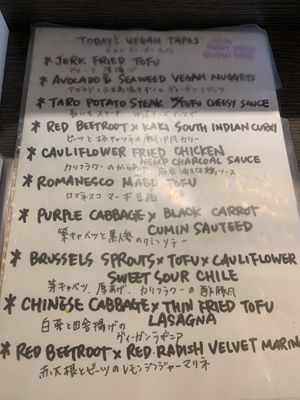 TODAY'S VEGAN TAPAS
* JERK FRIED TOFU
* AVOCADO & SEAWEED VEGAN NUGGETS
* TARO POTATO STEAK W/TOFU CHEESY SAUCE
* RED BEETROOT × KAKI SOUTH INDIAN CURRY
* CAULIFLOWER FRIED CHICKEN
HEMP CHARCOAL SAUCE
* ROMANESCO MABO TOFU
ロマネスコ マーボ豆腐
* PURPLE CABBAGE × BLACK CARROT
CUMIN SAUTEED
紫キャベツと黒人参のクミンソテー
* BRUSSELS SPROUTS × TOFU × CAULIFLOWER
SWEET SOUR CHILE
芽キャベツ、厚あげ、カリフラワーの
* CHINESE CABBAGE × THIN FRIED TOFU
LASAGNA
白菜と田舎揚げの
ヴィーガンラザニア
* RED BEETROOT × RED RADISH VELVET MARIN
赤大根とビーツのレモンジンジャーマリネ